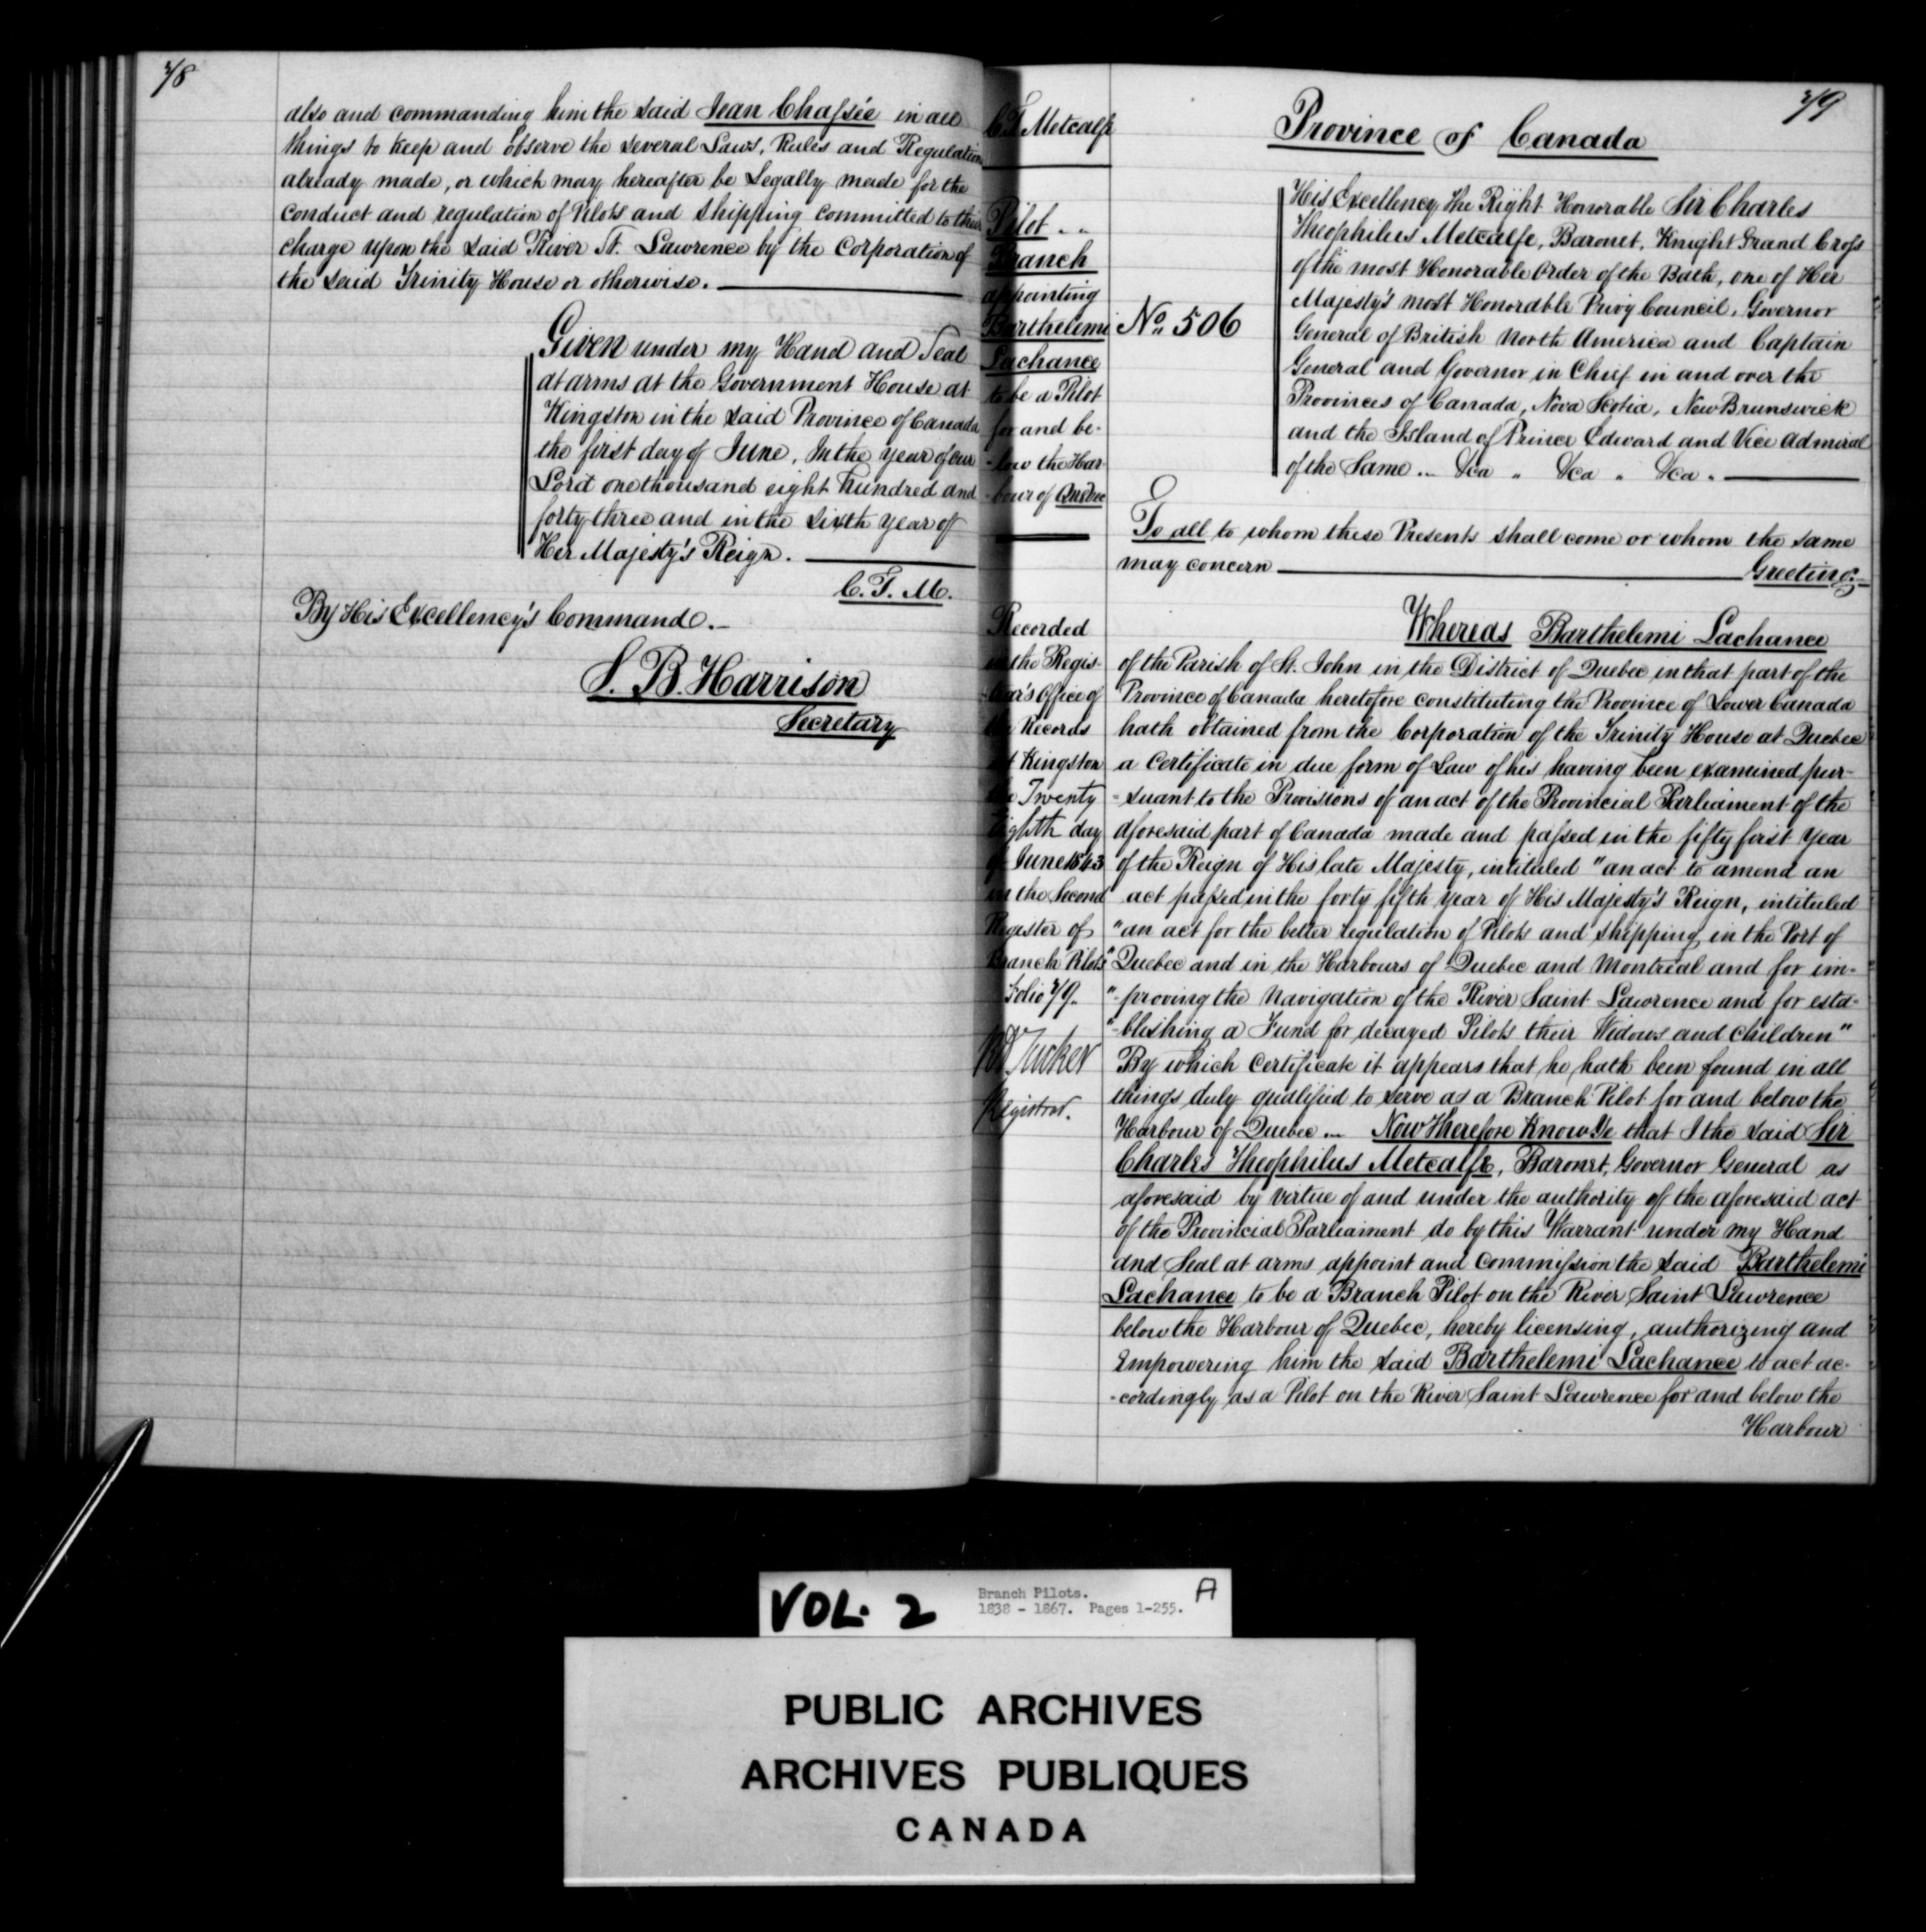 78
also and commanding him the said Jean Chassée in all
things to keep and observe the several Laws, Rules and Regulation
already made, or which may hereafter be Legally made for the
conduct and regulation of Pilots and Shipping committed to their
charge upon the said River St. Lawrence by the Corporation of
the said Trinity House or otherwise.
Given under my Hand and Seal
at arms at the Government House at
Kingston in the said Province of Canada
the first day of June, In the year of our
Lord one thousand eight hundred and
forty three and in the sixth year of
Her Majesty's Reign.
C. T. M.
By His Excellency's Command.
S. B. Harrison
Secretary
79
C T Metcalfe
Pilot
Branch
appointing
Barthelemi
Lachance
to be a Pilot
for and be-
-low the Har
-bour of Quebec
Recorded
in the Regis-
-trar's Office of
the Records
at Kingston
the Twenty
Eighth day
of June 1843
in the Second
Register of
Branch Pilots
Folio 79.
Tucker
Registrar.
Province of Canada
No 506
His Excellency The Right Honorable Sir Charles
Theophilus Metcalfe, Baronet, Knight Grand Cross
of the most Honorable Order of the Bath, one of Her
Majesty's most Honorable Privy Council, Governor
General of British North America and Captain
General and Governor in Chief in and over the
Provinces of Canada, Nova Scotia, New Brunswick
and the Island of Prince Edward and Vice Admiral
of the Same .. &ca " &ca " &ca .
To all to whom these Presents shall come or whom the same
may concern Greeting:
Whereas Barthelemi Lachance
of the Parish of St. John in the District of Quebec in that part of the
Province of Canada heretofore constituting the Province of Lower Canada
hath obtained from the Corporation of the Trinity House at Quebec
a Certificate in due form of Law of his having been examined pur-
-suant to the Provisions of an act of the Provincial Parliament of the
aforesaid part of Canada made and passed in the fifty first year
of the Reign of His late Majesty, intituled "an act to amend an
act passed in the forty fifth year of His Majesty's Reign, intituled
"an act for the better regulation of Pilots and Shipping in the Port of
"Quebec and in the Harbours of Quebec and Montreal and for im-
"-proving the Navigation of the River Saint Lawrence and for esta-
"-blishing a Fund for decayed Pilots their Widows and Children"
By which Certificate it appears that he hath been found in all
things duly qualified to serve as a Branch Pilot for and below the
Harbour of Quebec ... Now Therefore Know Ye that I the said Sir
Charles Theophilus Metcalfe, Baronet, Governor General as
aforesaid by virtue of and under the authority of the aforesaid act
of the Provincial Parliament do by this Warrant under my Hand
and Seal at arms appoint and Commission the said Barthelemi
Lachance to be a Branch Pilot on the River Saint Lawrence
below the Harbour of Quebec, hereby licensing, authorizing and
Empowering him the said Barthelemi Lachance to act ac-
-cordingly as a Pilot on the River Saint Lawrence for and below the
Harbour
VOL. 2
Branch Pilots.
1838 - 1867. Pages 1-255.
A
PUBLIC ARCHIVES
ARCHIVES PUBLIQUES
CANADA